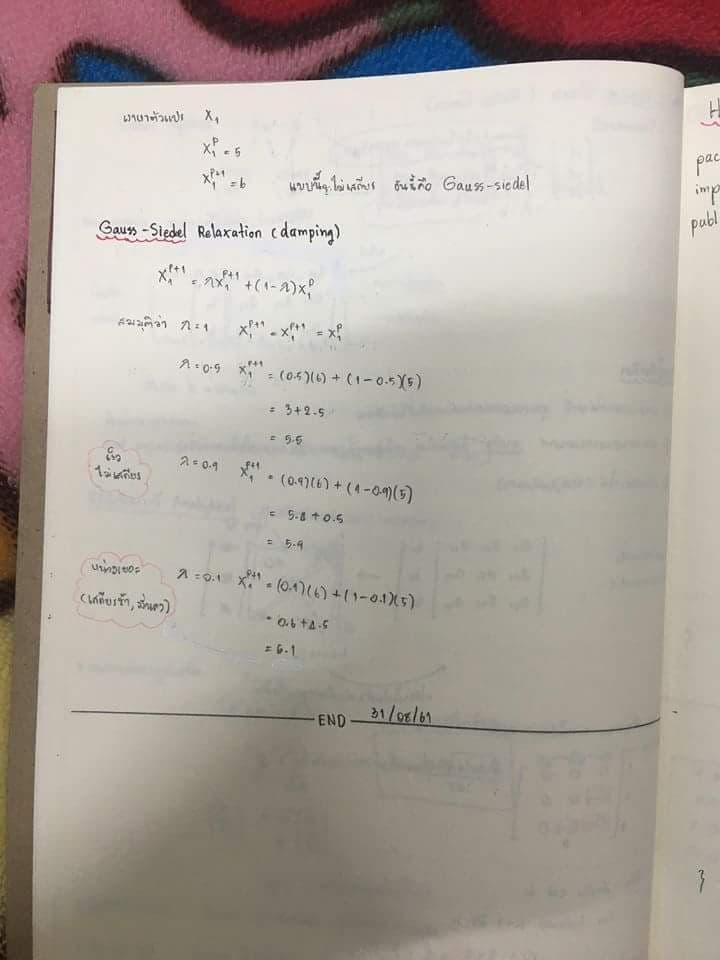 ภาษาตัวแปร X₁
X₁ᵖ = 5
X₁ᵖ⁺¹ = 6 แบบนี้จะไม่เสถียร อันนี้คือ Gauss-siedel
Gauss-Siedel Relaxation (damping)
X₁ᵖ⁺¹ = λX₁ᵖ⁺¹ + (1-λ)X₁ᵖ
สมมุติว่า λ=1 X₁ᵖ⁺¹ = X₁ᵖ⁺¹ = X₁ᵖ
λ=0.5 X₁ᵖ⁺¹ = (0.5)(6) + (1-0.5)(5)
= 3+2.5
= 5.5
เร็ว
ไม่เสถียร
λ=0.9 X₁ᵖ⁺¹ = (0.9)(6) + (1-0.9)(5)
= 5.4+0.5
= 5.9
หน่วงเยอะ
λ=0.1 X₁ᵖ⁺¹ = (0.1)(6) + (1-0.1)(5)
= 0.6+4.5
= 5.1
END 31/08/61
H
pac
imp
publ